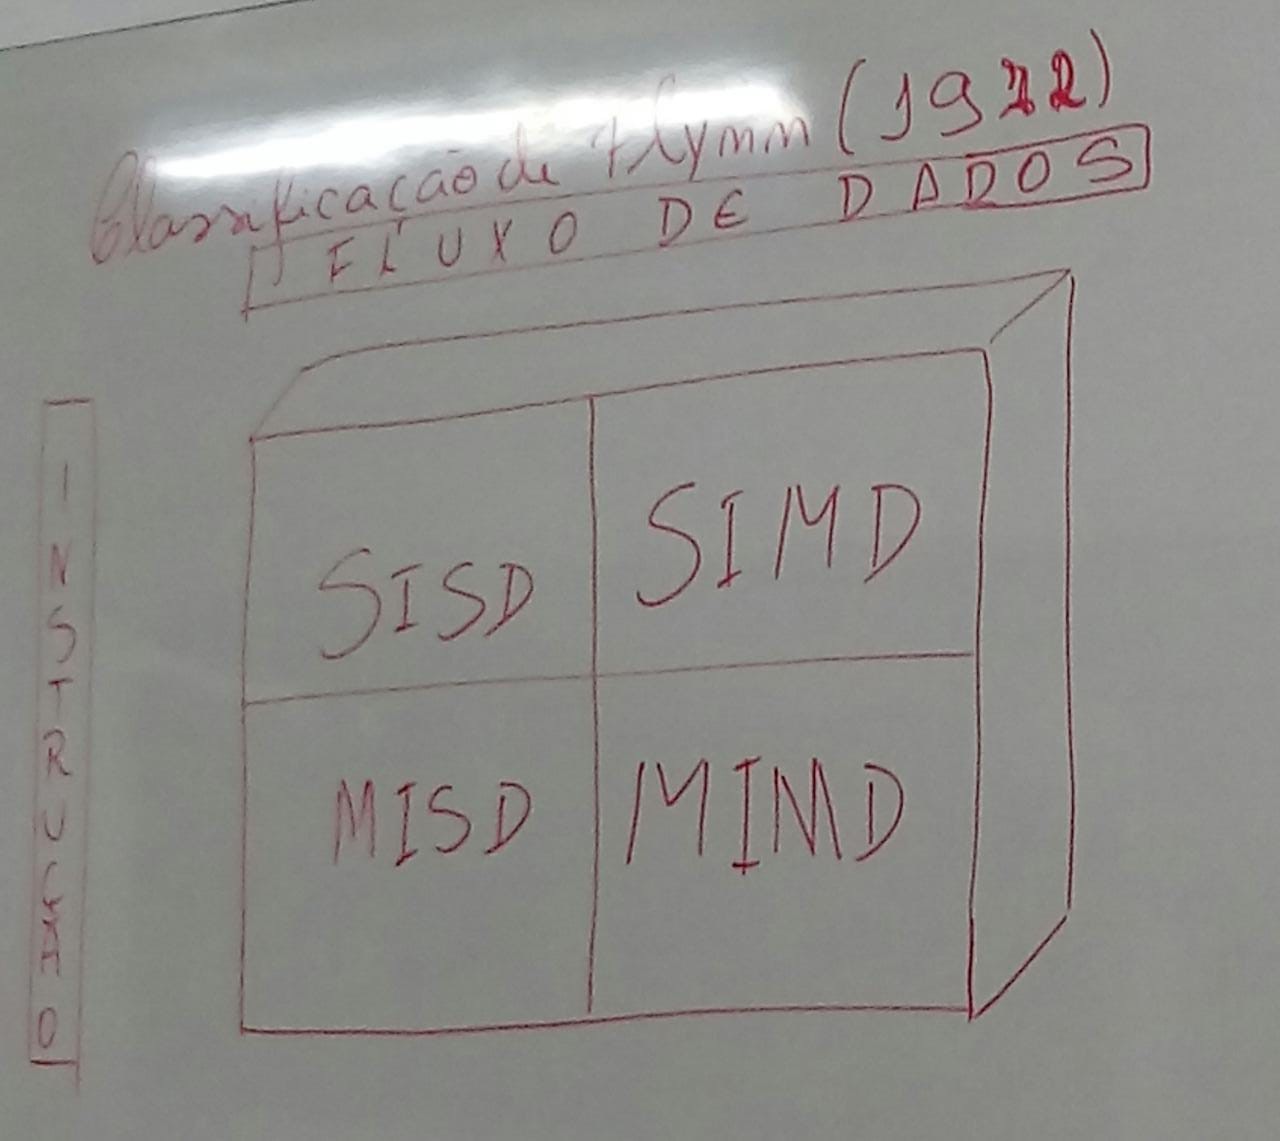 Classificação de Flynn (1972)
FLUXO DE DADOS
INSTRUÇÃO
SISD SIMD
MISD MIMD